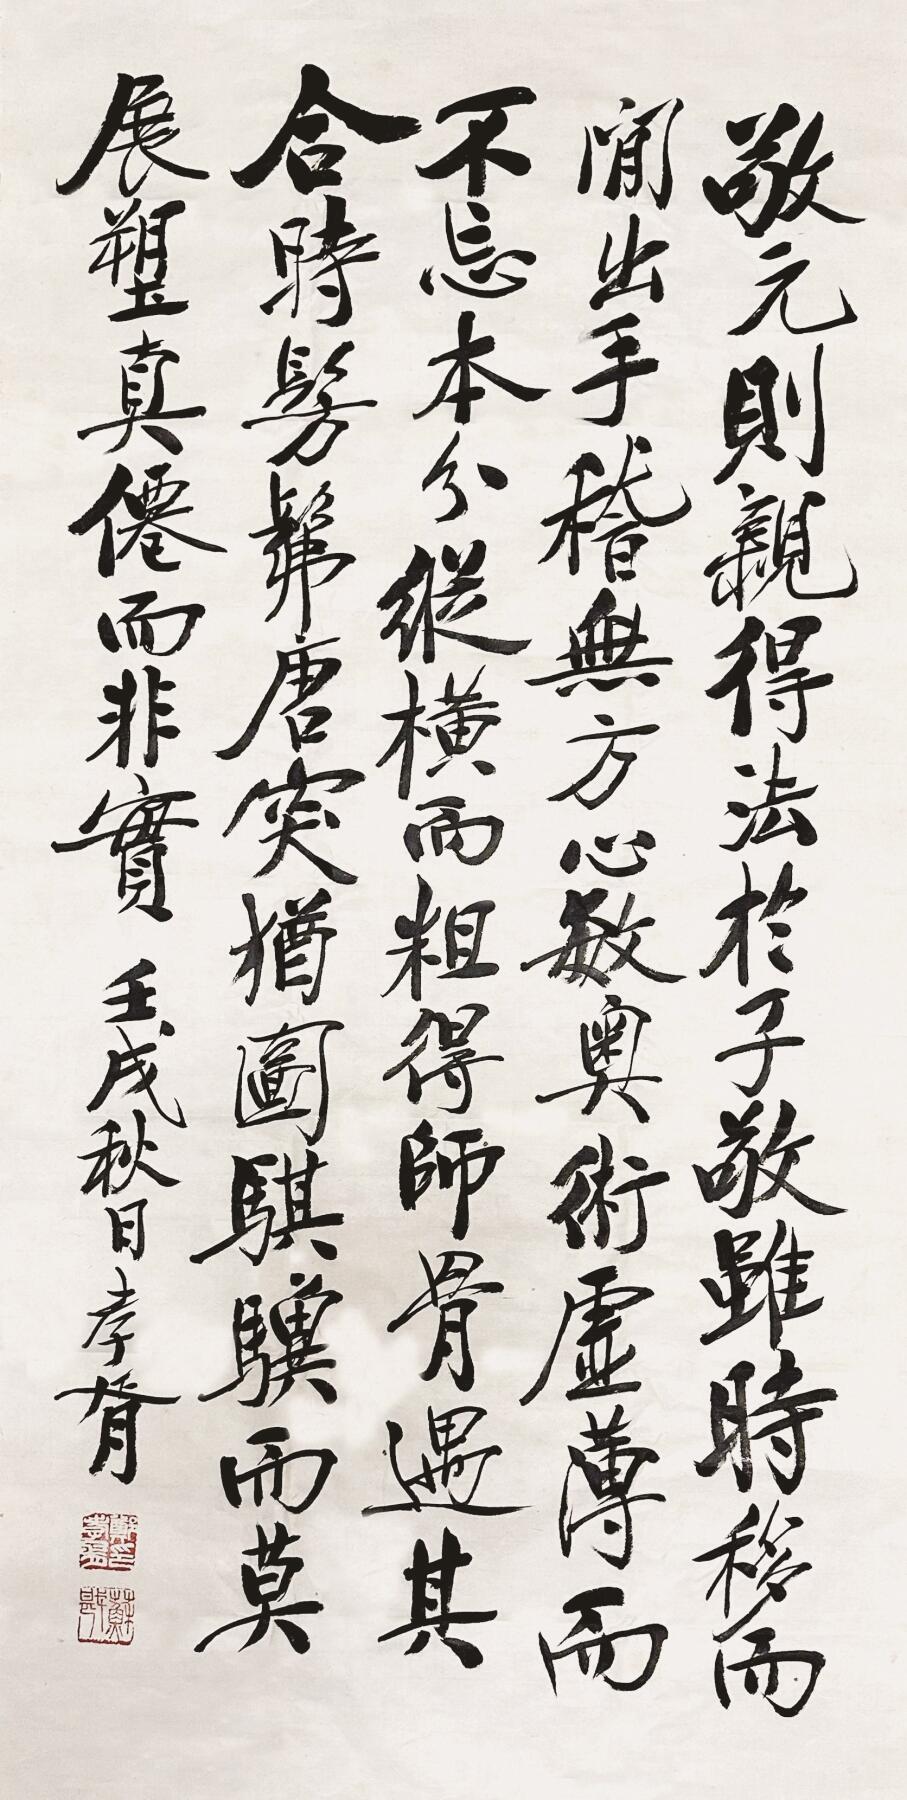 敬元則親得法於子敬雖時移而
間出手稽無方心敏奧術虛薄而
不忘本分縱橫而粗得師骨遇其
合時髣髴唐突猶圖騏驥而莫
展塑真僊而非實
壬戌秋日孝胥
鄭孝胥印
蘇戡